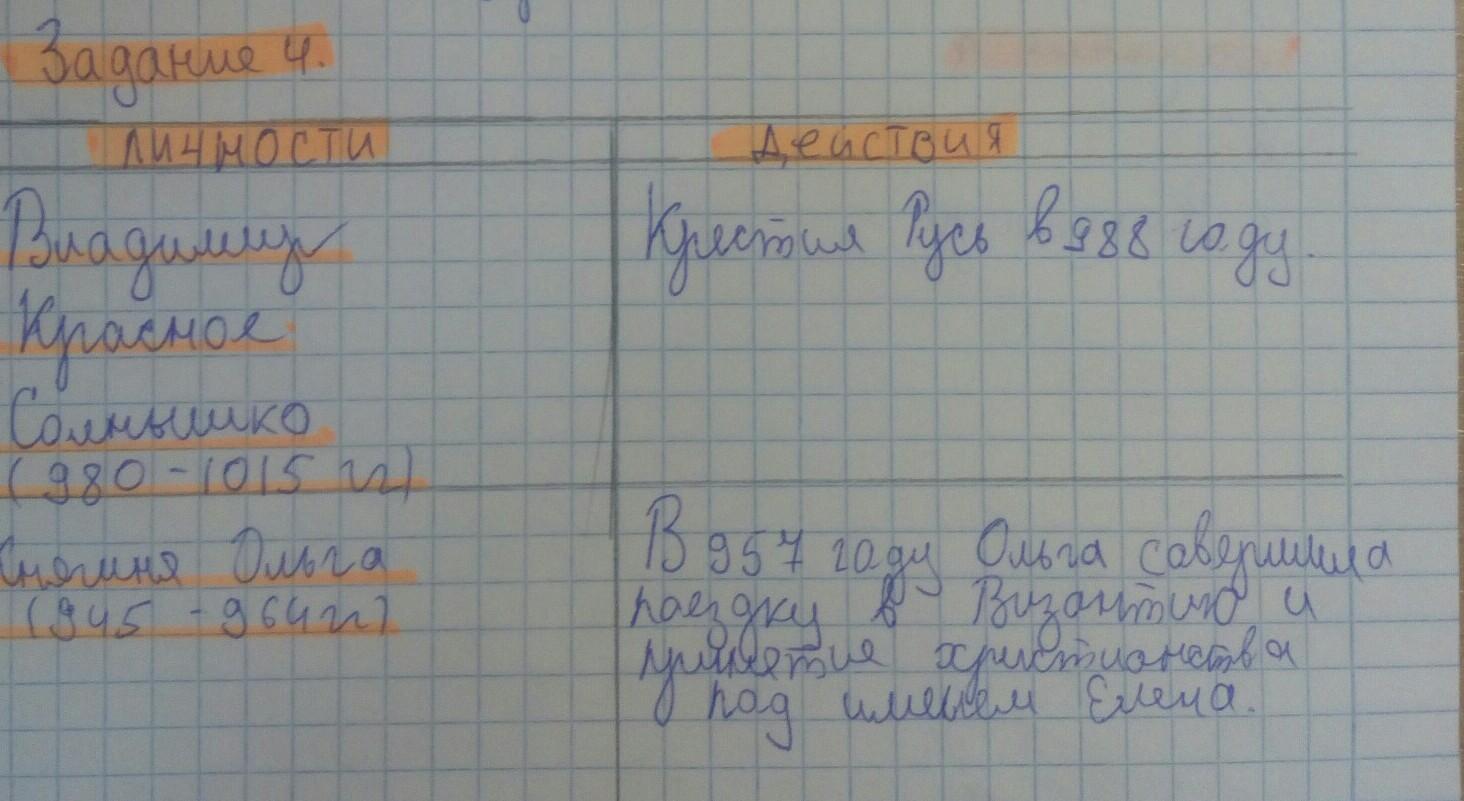 Задание 4.
личности
действия
Владимир
Красное
Солнышко
(980-1015 гг)
Крестил Русь в 988 году.
Княгиня Ольга
(945 - 964 гг)
В 957 году Ольга совершила
поездку в Византию и
принятие христианства
под именем Елена.